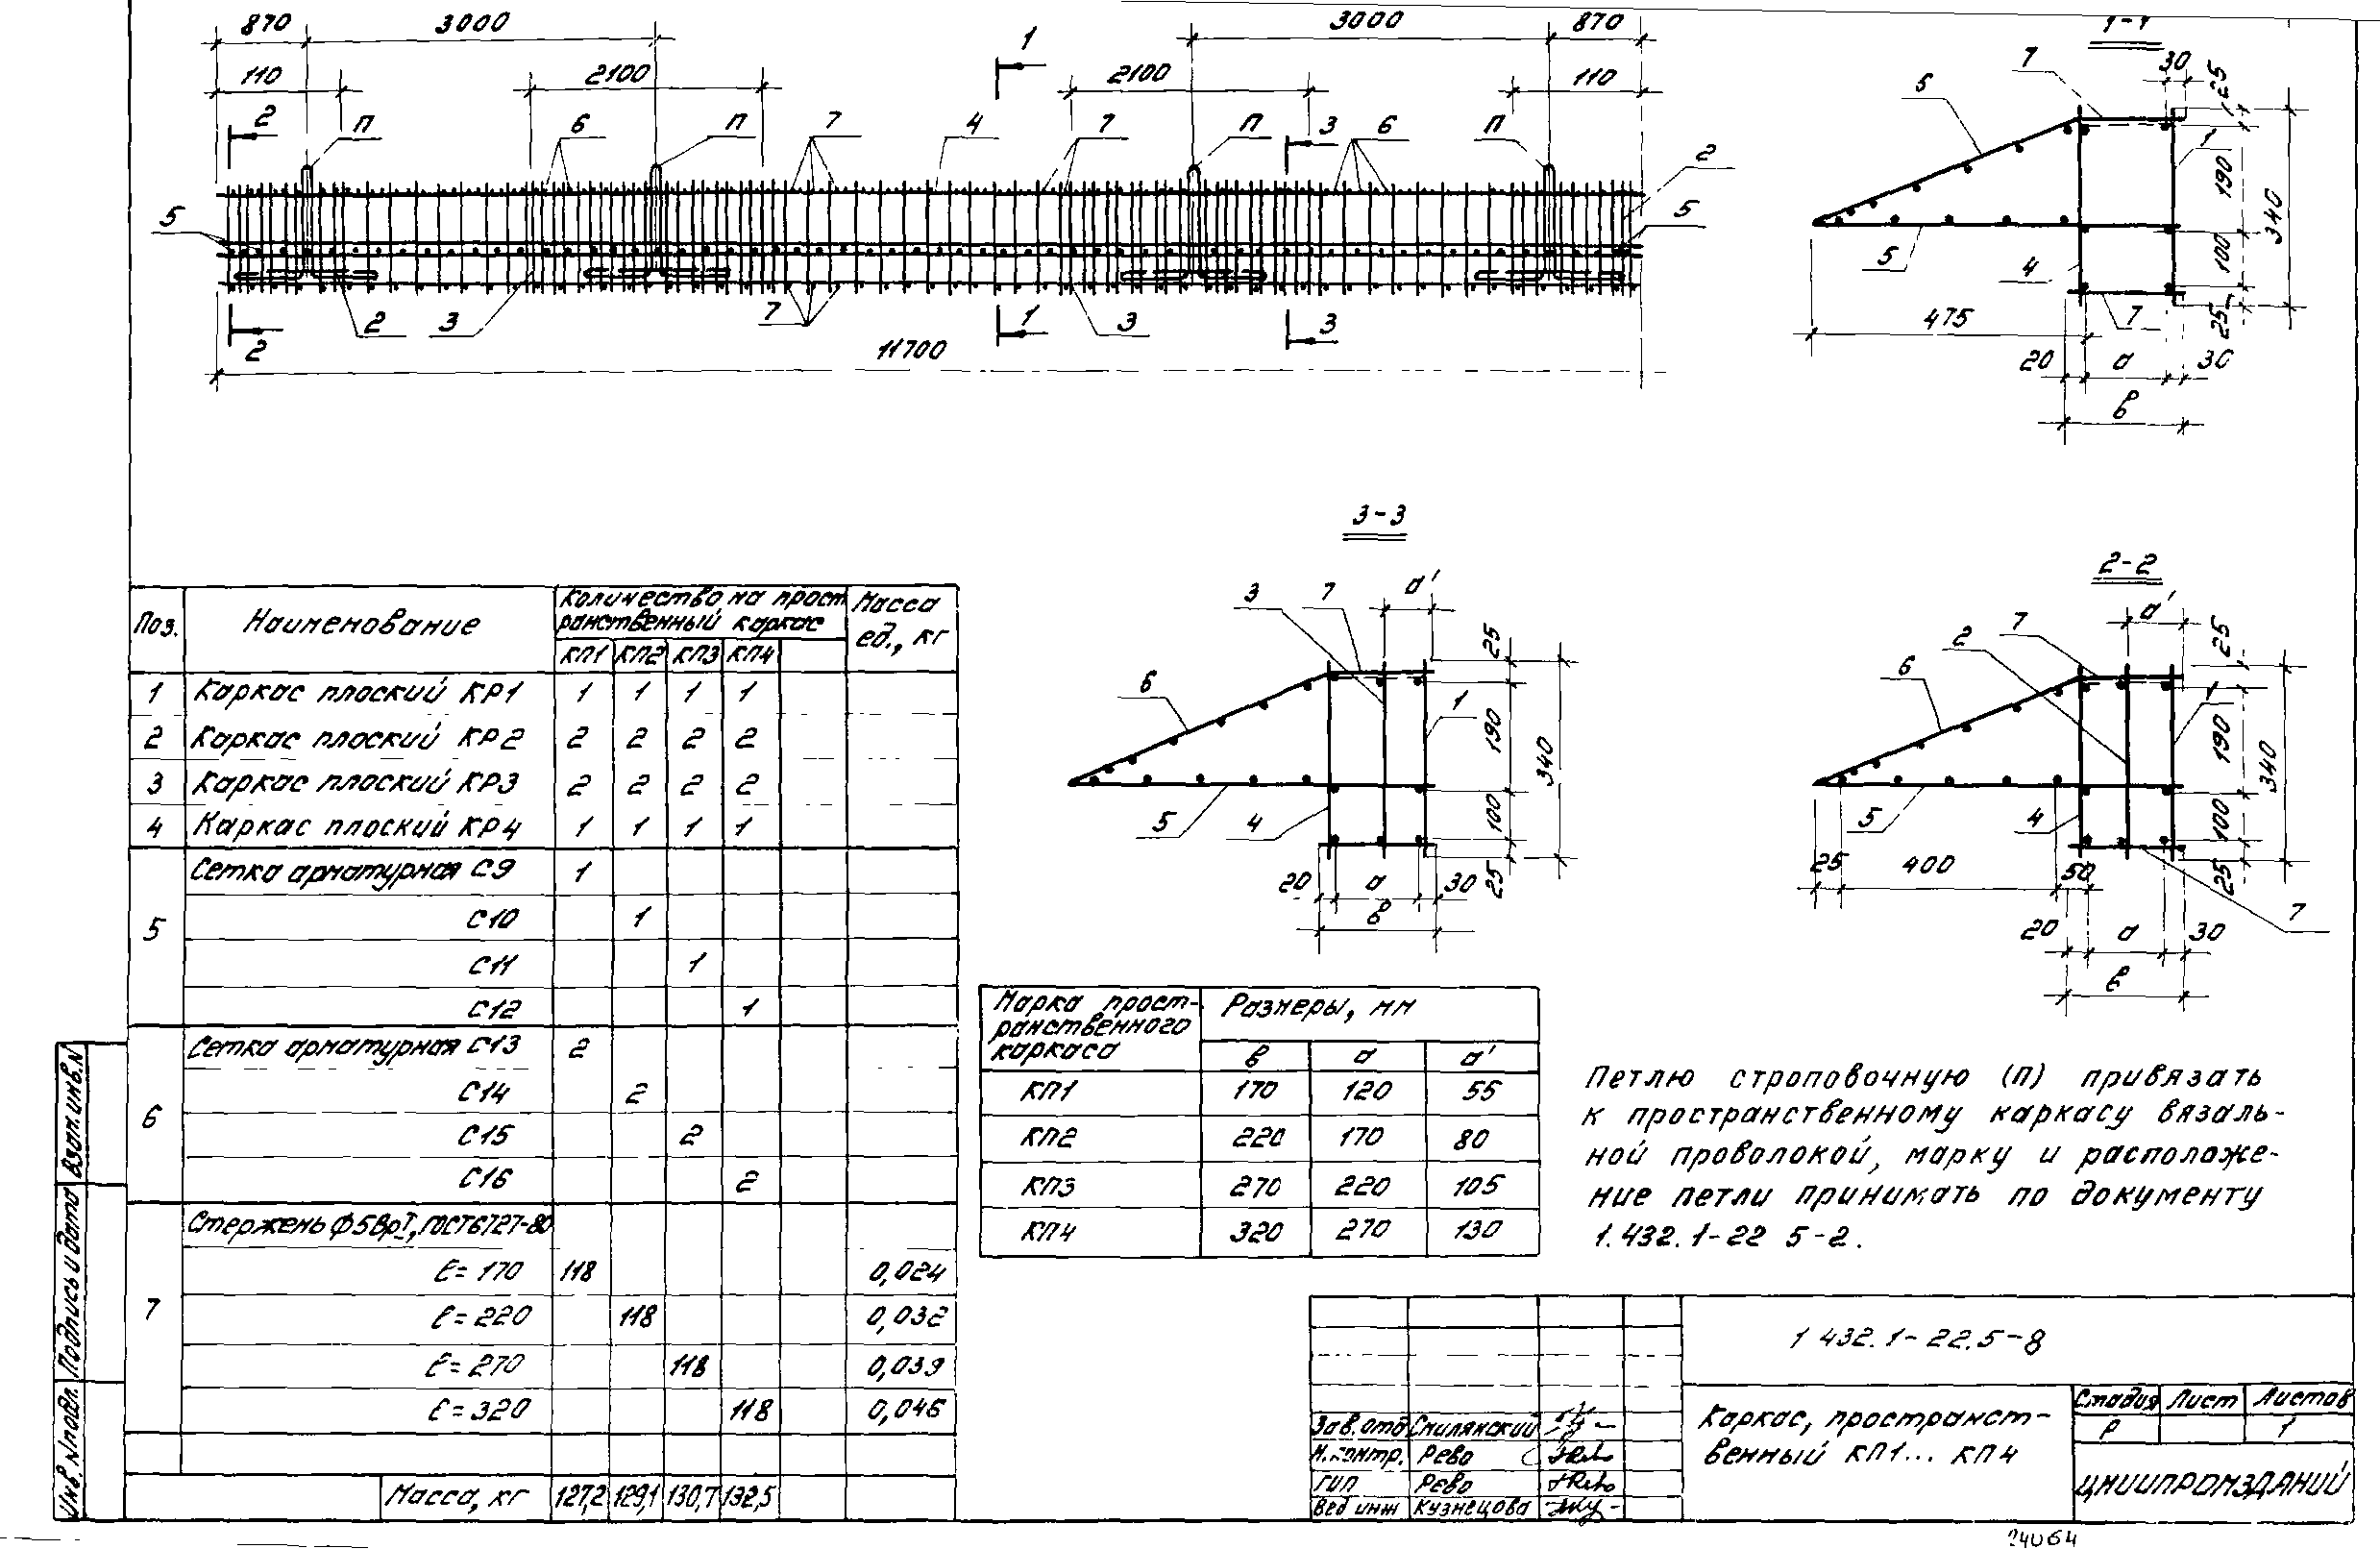 870 3000 3000 870
110 2100 1 2100 110
2 П 6 П 7 4 7 П 3 6 П 2
5 5
2 2 3 7 1 3 3
11700
1-1
5 7 30 25
1
190
340
5 4 100
475 7 25
20 а 30
в
3-3
3 7 а' 25
6 1
190
340
5 4 100
20 а 30 25
в
2-2
а'
6 2 7 25
1
190
340
5 4 100
25 400 50 25
7
20 а 30
в
Поз. Наименование Количество на прост Масса
ранственный каркас ед., кг
КП1 КП2 КП3 КП4
1 Каркас плоский КР1 1 1 1 1
2 Каркас плоский КР2 2 2 2 2
3 Каркас плоский КР3 2 2 2 2
4 Каркас плоский КР4 1 1 1 1
5 Сетка арматурная С9 1
С10 1
С11 1
С12 1
6 Сетка арматурная С13 2
С14 2
С15 2
С16 2
7 Стержень Ф5ВрI, ГОСТ6727-80
ℓ=170 118 0,024
ℓ=220 118 0,032
ℓ=270 118 0,039
ℓ=320 118 0,046
Масса, кг 127,2 129,1 130,7 132,5
Марка прост- Размеры, мм
ранственного
каркаса в а а'
КП1 170 120 55
КП2 220 170 80
КП3 270 220 105
КП4 320 270 130
Петлю строповочную (П) привязать
к пространственному каркасу вязаль-
ной проволокой, марку и расположе-
ние петли принимать по документу
1.432.1-22 5-2.
1 432.1-22.5-8
Каркас, пространст-
венный КП1... КП4
Стадия Лист Листов
Р 1
ЦНИИПРОМЗДАНИЙ
Зав.отд Смилянский
Н.контр. Рево
ГИП Рево
Вед инж Кузнецова
Взам.инв.N
Подпись и дата
Инв.Nподл.
24064